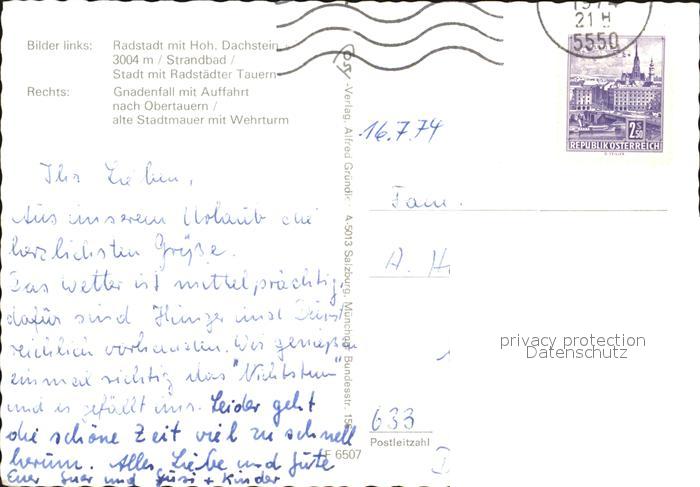 Bilder links: Radstadt mit Hoh. Dachstein
3004 m / Strandbad /
Stadt mit Radstädter Tauern
Rechts: Gnadenfall mit Auffahrt
nach Obertauern /
alte Stadtmauer mit Wehrturm
Ihr Lieben,
Aus unserem Urlaub die
herzlichsten Grüße.
Das Wetter ist mittelprächtig,
dafür sind Hunger und Durst
reichlich vorhanden. Wir genießen
einmal richtig das "Nichtstun"
und es gefällt uns. Leider geht
die schöne Zeit viel zu schnell
herum. Alles Liebe und Gute
Euer und Susi + Kinder
-Verlag, Alfred Gründler A-5013 Salzburg, Münchner Bundesstr.
F 6507
1974
21 H
5550
2S50
REPUBLIK ÖSTERREICH
16.7.74
Fam.
A. H
privacy protection
Datenschutz
633
Postleitzahl